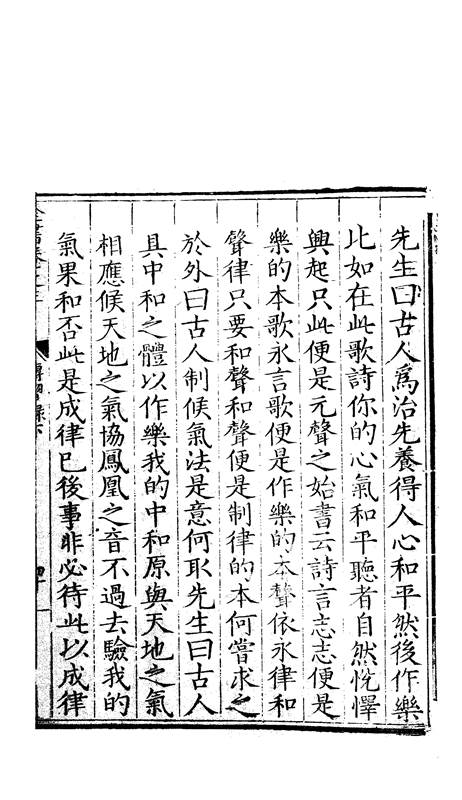 先生曰古人爲治先養得人心和平然後作樂
比如在此歌詩你的心氣和平聽者自然悅懌
興起只此便是元聲之始書云詩言志志便是
樂的本歌永言歌便是作樂的本聲依永律和
聲律只要和聲和聲便是制律的本何嘗求之
於外曰古人制候氣法是意何取先生曰古人
具中和之體以作樂我的中和原與天地之氣
相應候天地之氣協鳳凰之音不過去驗我的
氣果和否此是成律已後事非必待此以成律
傳習錄下